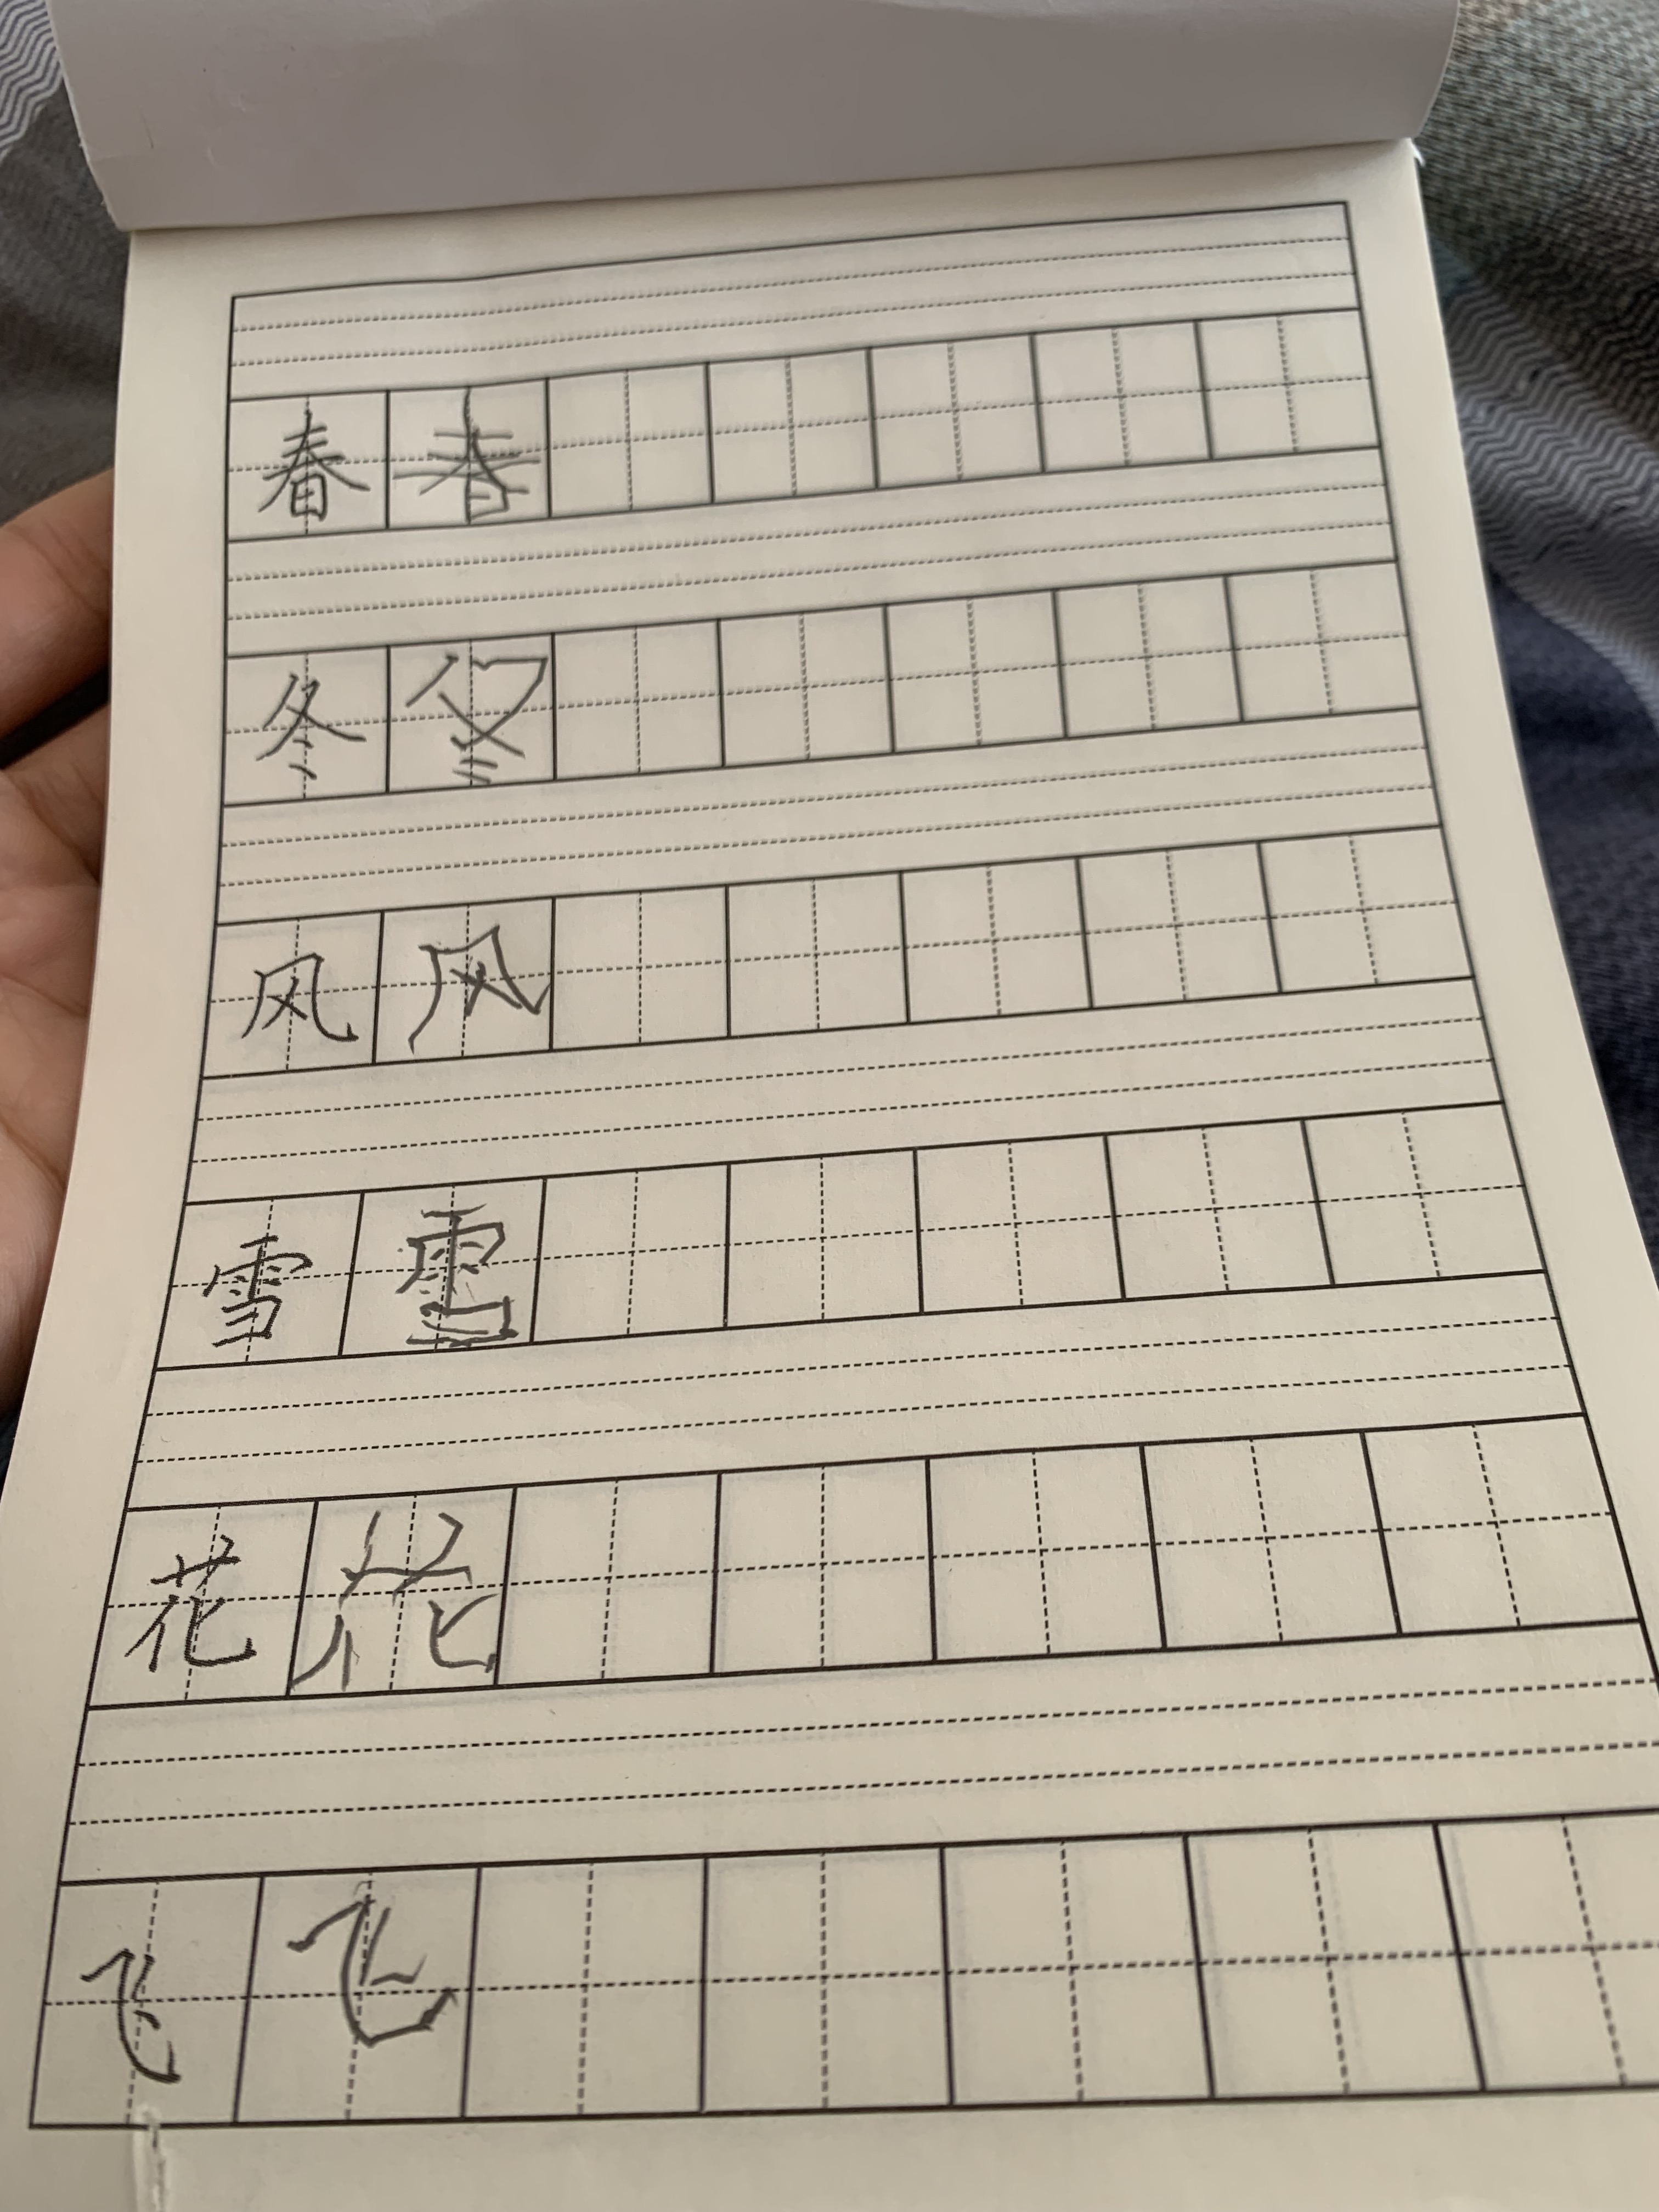 春 春
冬 冬
风 风
雪 雪
花 花
飞 飞